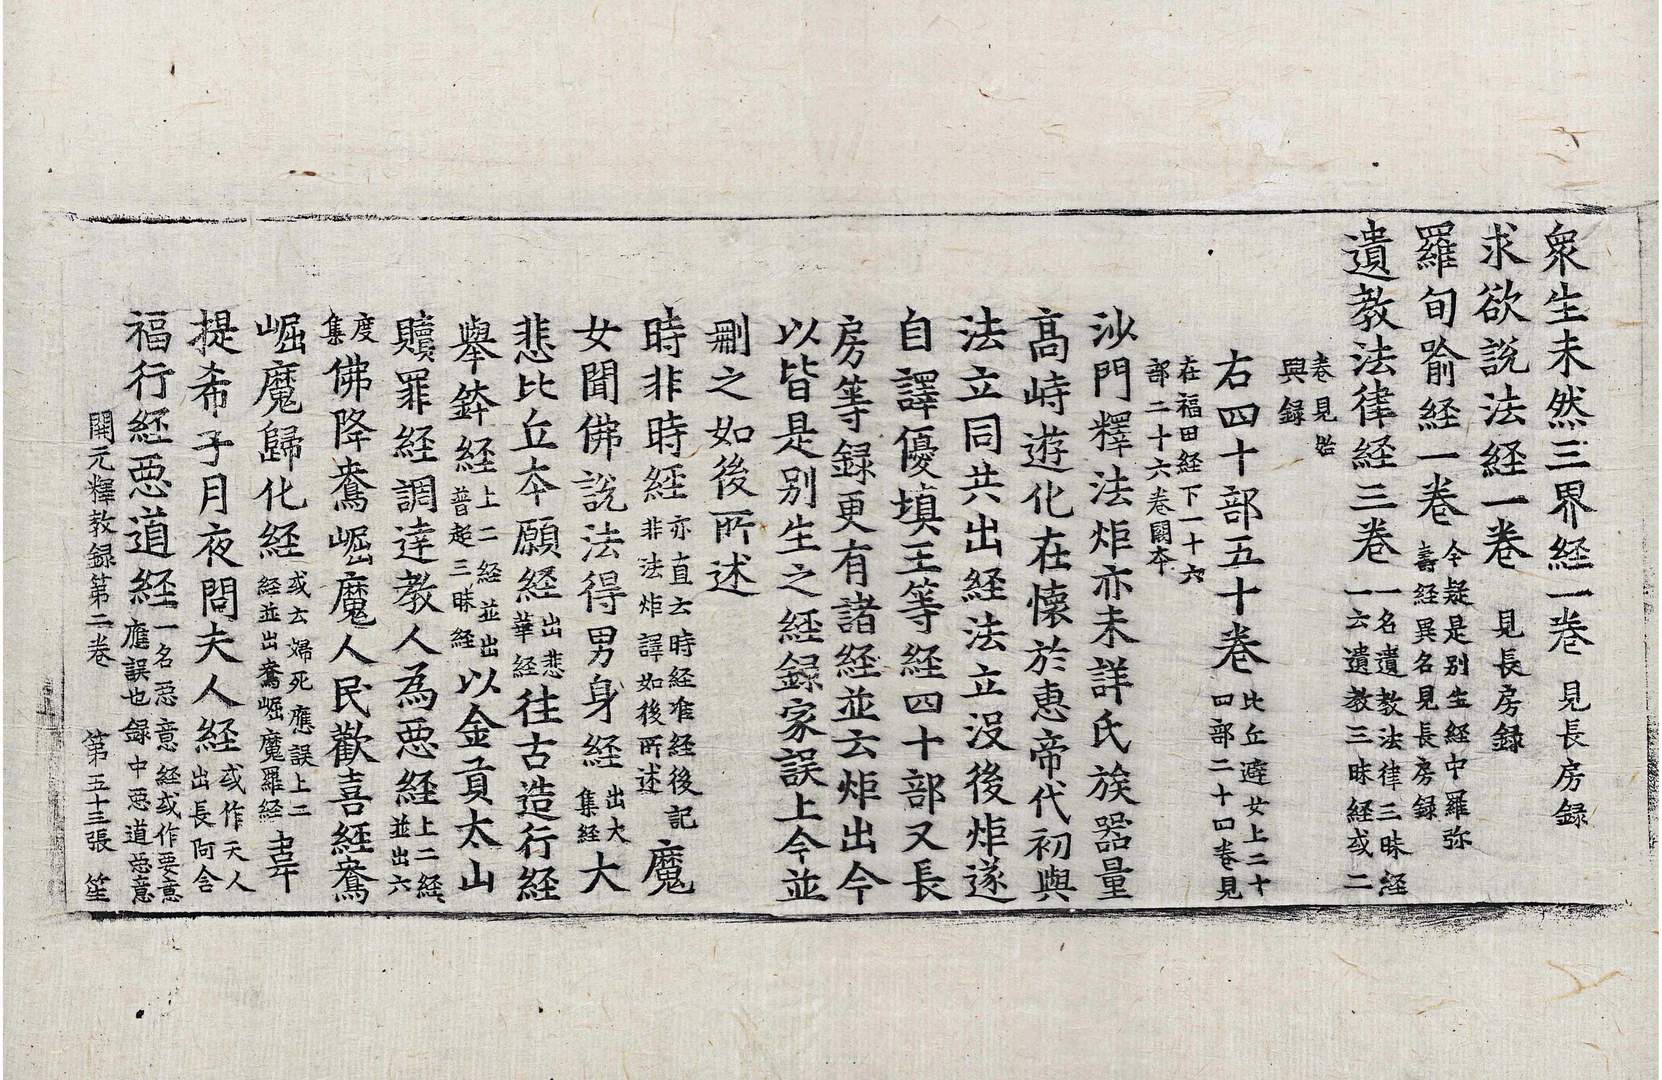 衆生未然三界経一卷 見長房録
求欲說法経一卷 見長房録
羅旬喻経一卷 今疑是别生経中羅弥
壽経異名見長房録
遺教法律経三卷 一名遺教法律三昧経或二
一云遺教三昧経
卷見始
興録
右四十部五十卷 比丘避女上二十
四部二十四卷見
在福田経下一十六
部二十六卷闕夲
沙門釋法炬亦未詳氏族器量
髙峙遊化在懷於惠帝代初與
法立同共出経法立沒後炬遂
自譯優填王等経四十部又長
房等録更有諸経並云炬出今
以皆是别生之経録家誤上今並
刪之如後所述
時非時経 亦直云時経准経後記
非法炬譯如後所述 魔
女聞佛說法得男身経 出大
集経 大
悲比丘夲願経 出悲
華経 往古造行経
舉鉢経 上二経並出
普超三昧経 以金貢太山
贖罪経調達教人為惡経 上二経
並出六
度
集 佛降鴦崛魔人民歡喜経鴦
崛魔歸化経 或云婦死應誤上二
経並出鴦崛魔羅経 韋
提希子月夜問夫人経 或作天人
出長阿含
福行経惡道経 一名惡意経或作要意
應誤也録中惡道惡意
開元釋教録第二卷 第五十三張 笙